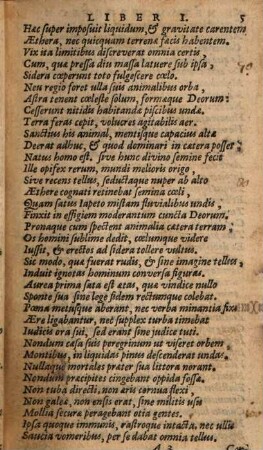 LIBER I. 5
Hæc super imposuit liquidum, & gravitate carentem
Æthera, nec quicquam terrenæ fæcis habentem.
Vix ita limitibus discreverat omnia certis,
Cum, quæ pressa diu massa latuere sub ipsa,
Sidera cœperunt toto fulgescere cœlo.
Neu regio foret ulla suis animalibus orba,
Astra tenent cœleste solum, formæque Deorum:
Cesserunt nitidis habitandæ piscibus undæ.
Terra feras cepit, volucres agitabilis aer.
Sanctius his animal, mentisque capacius altæ
Deerat adhuc, & quod dominari in cætera posset
Natus homo est, sive hunc divino semine fecit
Ille opifex rerum, mundi melioris origo,
Sive recens tellus, seductaque nuper ab alto
Æthere cognati retinebat semina cœli
Quam satus Iapeto mistam fluvialibus undis,
Finxit in effigiem moderantum cuncta Deorum.
Pronaque cum spectent animalia cætera terram;
Os homini sublime dedit, cœlumque videre
Iussit, & erectos ad sidera tollere vultus.
Sic modo, quæ fuerat rudis, & sine imagine tellus,
Induit ignotas hominum conversa figuras.
Aurea prima sata est ætas, quæ vindice nullo
Sponte sua sine lege fidem rectumque colebat.
Pœna metusque aberant, nec verba minantia fixo
Ære ligabantur, nec supplex turba timebat
Iudicis ora sui, sed erant sine judice tuti.
Nondum cæsa suis peregrinum ut viseret orbem
Montibus, in liquidas pinus descenderat undas
Nullaque mortales præter sua littora norant.
Nondum præcipites cingebant oppida fossæ.
Non tuba directi, non æris cornua flexi,
Non galeæ, non ensis erat, sine militis usu
Mollia securæ peragebant otia gentes.
Ipsa quoque immunis, rastroque intacta, nec ullis
Saucia vomeribus, per se dabat omnia tellus.
A 3